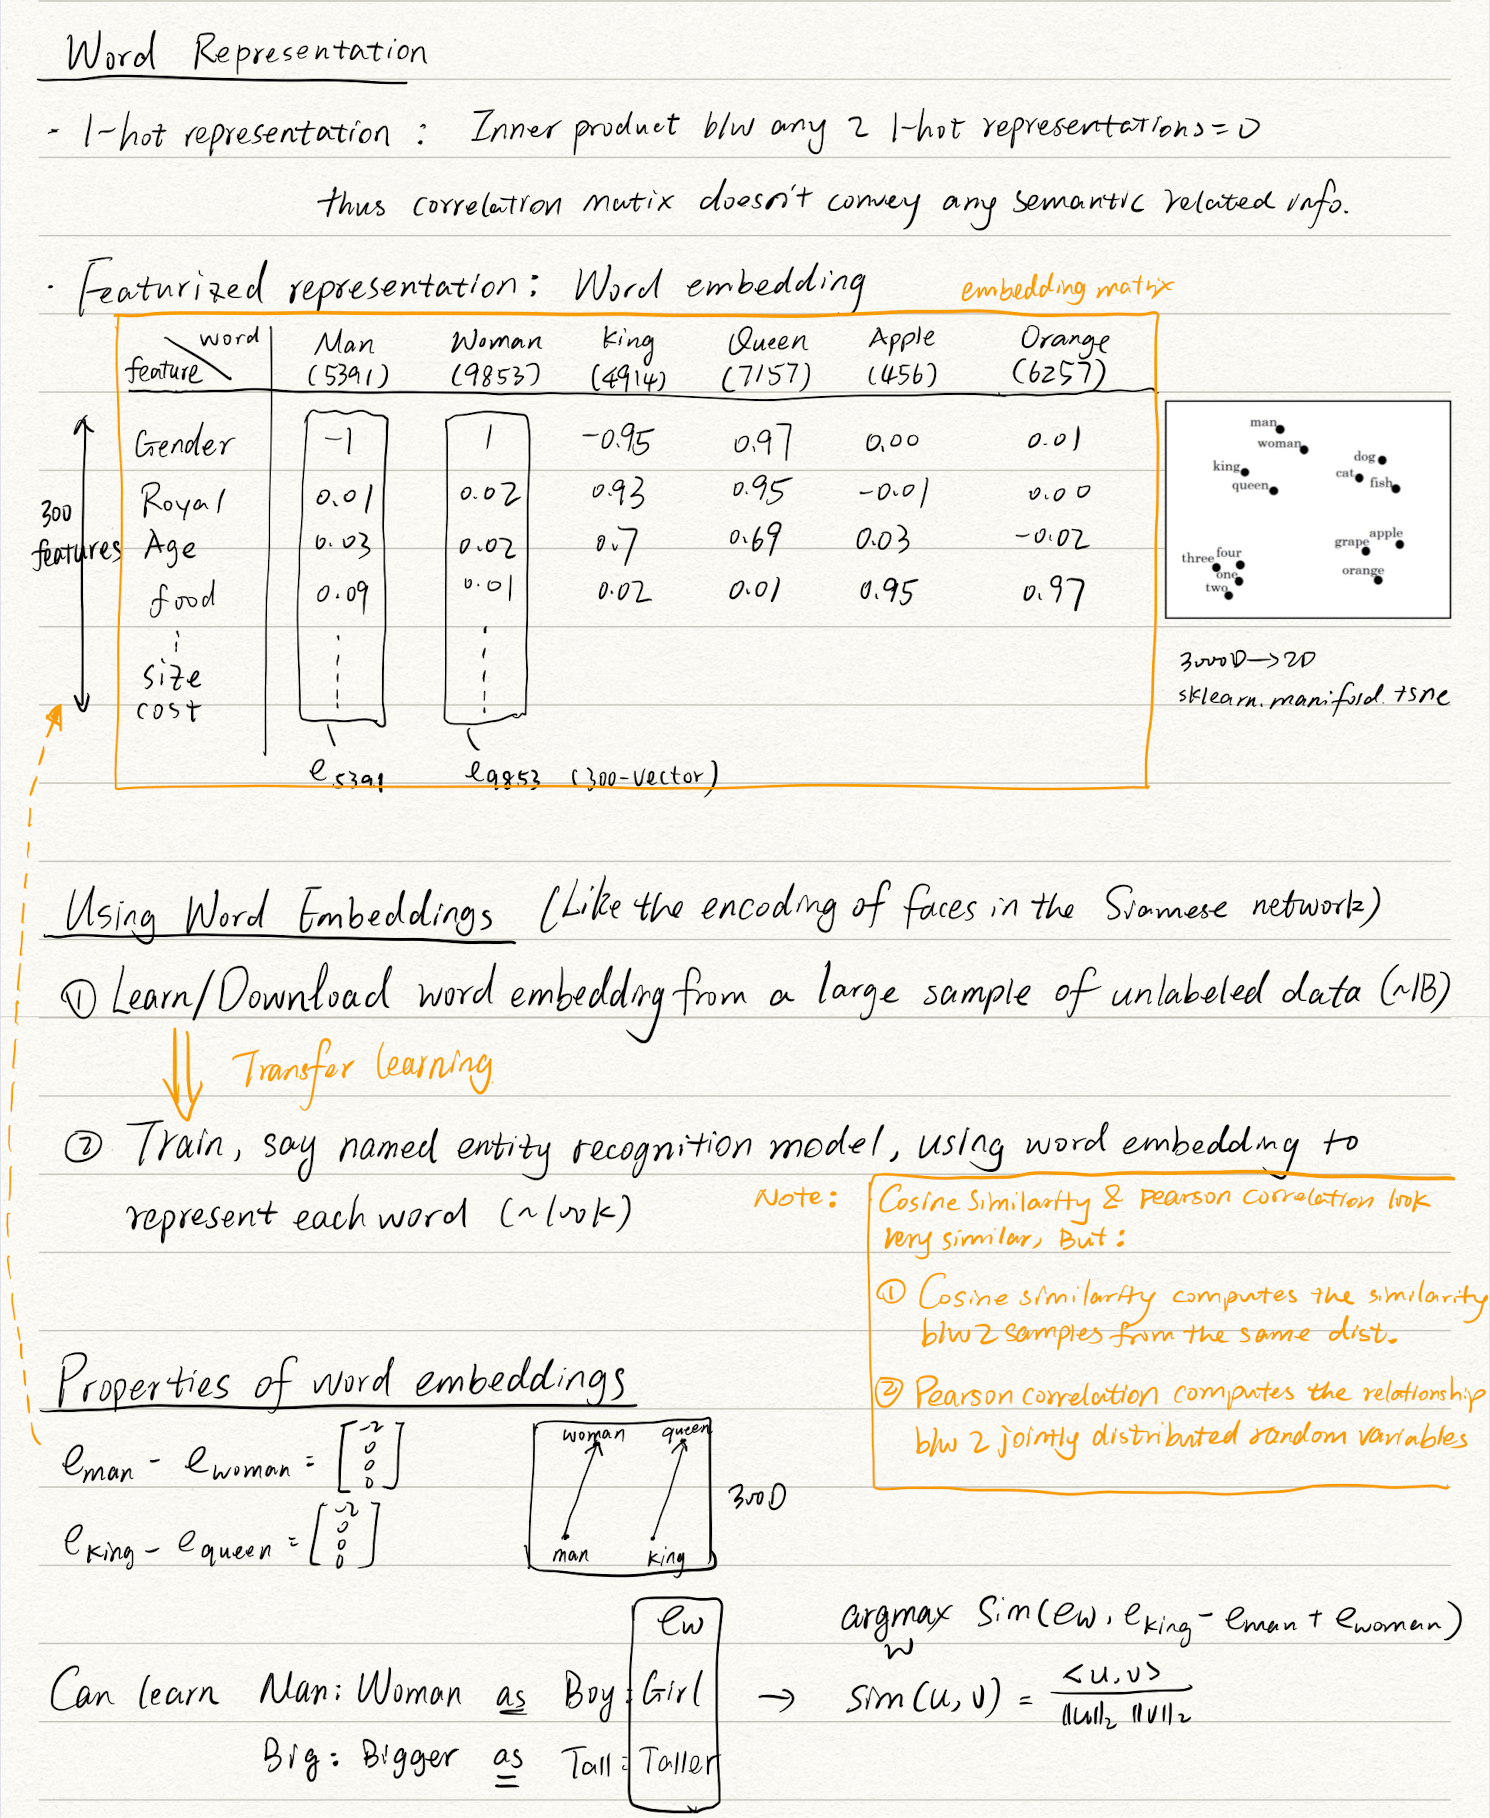 Word Representation
- 1-hot representation : Inner product b/w any 2 1-hot representations = 0
thus correlation matix doesn't convey any semantic related info.
· Featurized representation: Word embedding
embedding matrix
word
feature
Man Woman King Queen Apple Orange
(5391) (9853) (4914) (7157) (456) (6257)
Gender -1 1 -0.95 0.97 0.00 0.01
Royal 0.01 0.02 0.93 0.95 -0.01 0.00
Age 0.03 0.02 0.7 0.69 0.03 -0.02
food 0.09 0.01 0.02 0.01 0.95 0.97
size
cost
300
features
e5391 e9853 (300-vector)
man
woman
king
queen
dog
cat
fish
three four
one
two
grape apple
orange
3000D → 2D
sklearn. manifold. tsne
Using Word Embeddings (Like the encoding of faces in the Siamese network)
① Learn/Download word embedding from a large sample of unlabeled data (~1B)
Transfer learning
② Train, say named entity recognition model, using word embedding to
represent each word (~100k)
Note:
Cosine Similarity & pearson correlation look
very similar, But:
① Cosine similarity computes the similarity
b/w 2 samples from the same dist.
② Pearson correlation computes the relationship
b/w 2 jointly distributed random variables
Properties of word embeddings
eman - ewoman = [-2 0 0 0]
eking - equeen = [-2 0 0 0]
woman queen
man king
300D
ew
argmax Sim(ew, eking - eman + ewoman)
w
Can learn Man: Woman as Boy: Girl → sim(u, v) = <u,v> / ||u||2 ||v||2
Big: Bigger as Tall: Taller